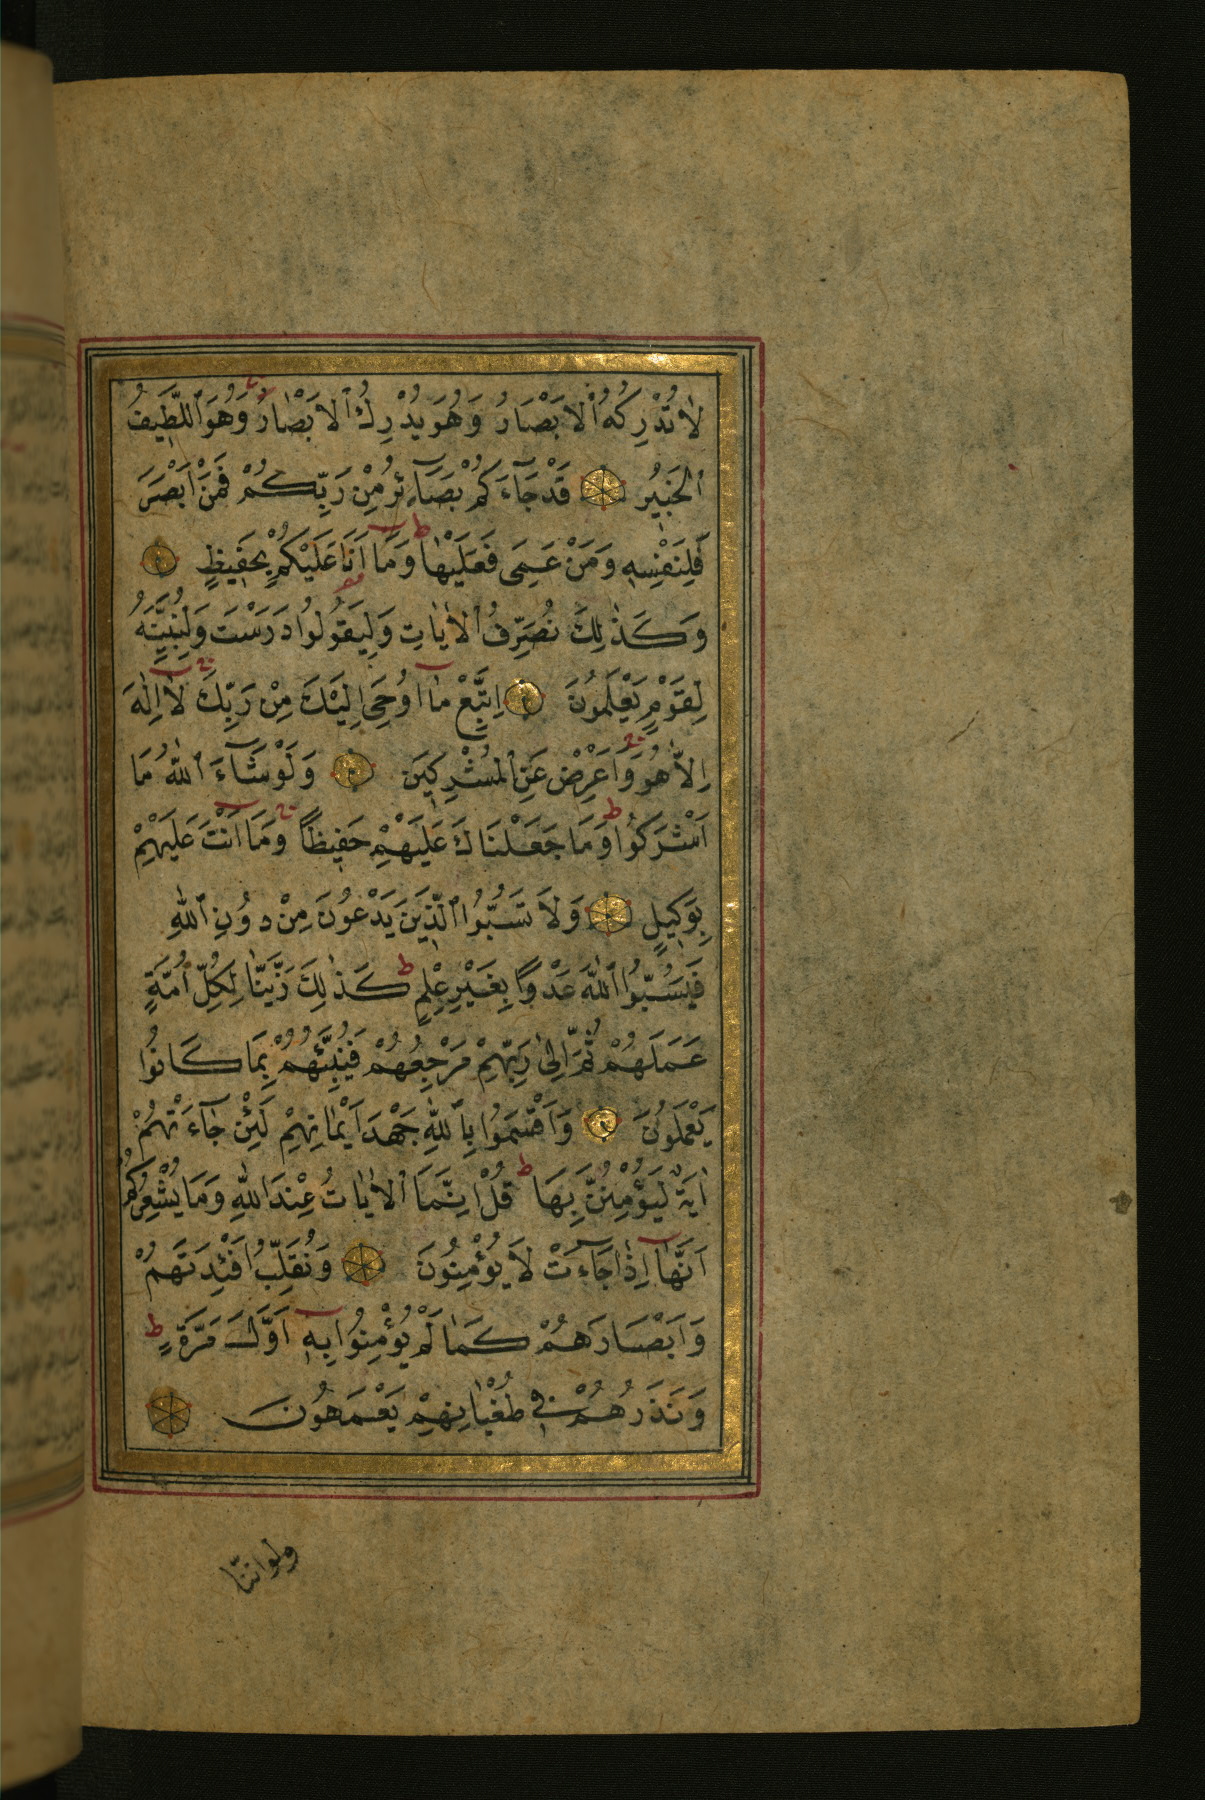 لَا تُدْرِكُهُ ٱلْاَبْصَارُ وَهُوَ يُدْرِكُ ٱلْاَبْصَارَ وَهُوَ ٱللَّطِيفُ
ٱلْخَبِيرُ قَدْ جَآءَكُمْ بَصَآئِرُ مِنْ رَبِّكُمْ فَمَنْ اَبْصَرَ
فَلِنَفْسِهٖ وَمَنْ عَمِىَ فَعَلَيْهَا ط وَمَٓا اَنَا عَلَيْكُمْ بِحَفِيظٍ
وَكَذٰلِكَ نُصَرِّفُ ٱلْاٰيَاتِ وَلِيَقُولُوا دَرَسْتَ وَلِنُبَيِّنَهُ
لِقَوْمٍ يَعْلَمُونَ اِتَّبِعْ مَٓا اُوحِىَ اِلَيْكَ مِنْ رَبِّكَ ج لَٓا اِلٰهَ
اِلَّا هُوَ ج وَاَعْرِضْ عَنِ ٱلْمُشْرِكِينَ وَلَوْ شَآءَ ٱللّٰهُ مَٓا
اَشْرَكُوا ط وَمَا جَعَلْنَاكَ عَلَيْهِمْ حَفِيظًا ج وَمَٓا اَنْتَ عَلَيْهِمْ
بِوَكِيلٍ وَلَا تَسُبُّوا ٱلَّذِينَ يَدْعُونَ مِنْ دُونِ ٱللّٰهِ
فَيَسُبُّوا ٱللّٰهَ عَدْوًا بِغَيْرِ عِلْمٍ ط كَذٰلِكَ زَيَّنَّا لِكُلِّ اُمَّةٍ
عَمَلَهُمْ ثُمَّ اِلٰى رَبِّهِمْ مَرْجِعُهُمْ فَيُنَبِّئُهُمْ بِمَا كَانُوا
يَعْمَلُونَ وَاَقْسَمُوا بِٱللّٰهِ جَهْدَ اَيْمَانِهِمْ لَئِنْ جَآءَتْهُمْ
اٰيَةٌ لَيُؤْمِنُنَّ بِهَا ط قُلْ اِنَّمَا ٱلْاٰيَاتُ عِنْدَ اللّٰهِ وَمَا يُشْعِرُكُمْ
اَنَّهَٓا اِذَا جَآءَتْ لَا يُؤْمِنُونَ وَنُقَلِّبُ اَفْئِدَتَهُمْ
وَاَبْصَارَهُمْ كَمَا لَمْ يُؤْمِنُوا بِهٖٓ اَوَّلَ مَرَّةٍ ط
وَنَذَرُهُمْ فِى طُغْيَانِهِمْ يَعْمَهُونَ
ولو اننا